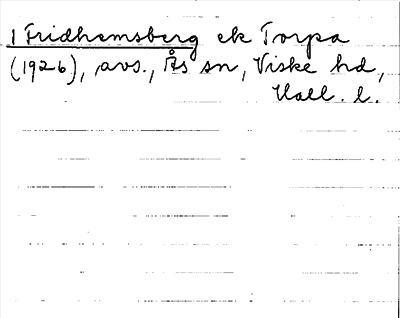 1 Fridhemsberg ek Torpa
(1926), avs., Ås sn, Viske hd,
Hall. l.